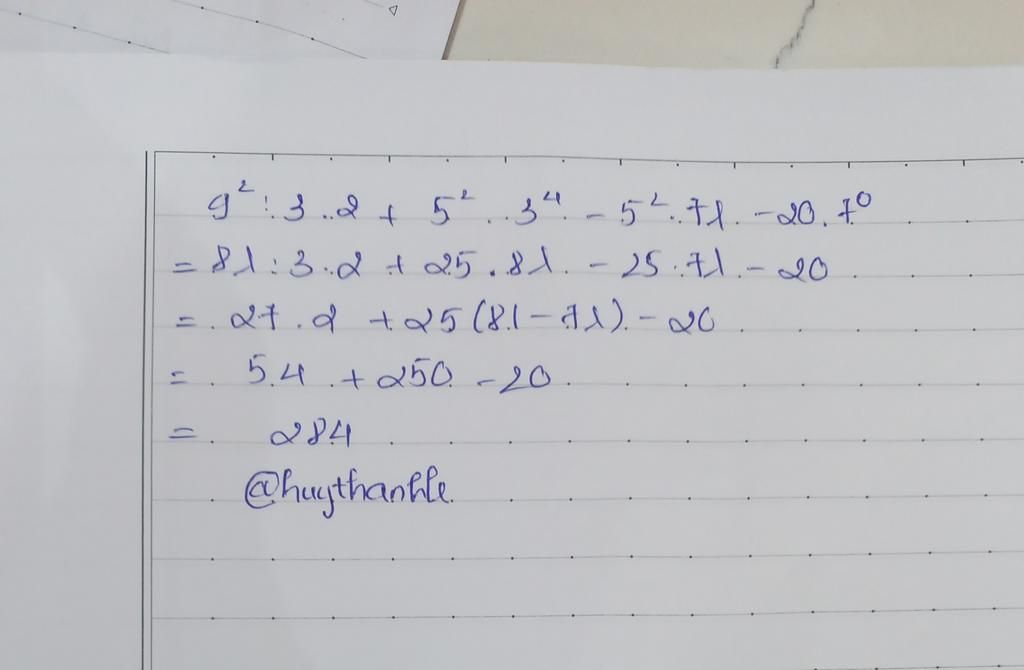 9²:3.2 + 5².3⁴ - 5².71 - 20.7⁰
= 81:3.2 + 25.81 - 25.71 - 20
= 27.2 + 25(81-71) - 20
= 54 + 250 - 20
= 284
@huythanhle